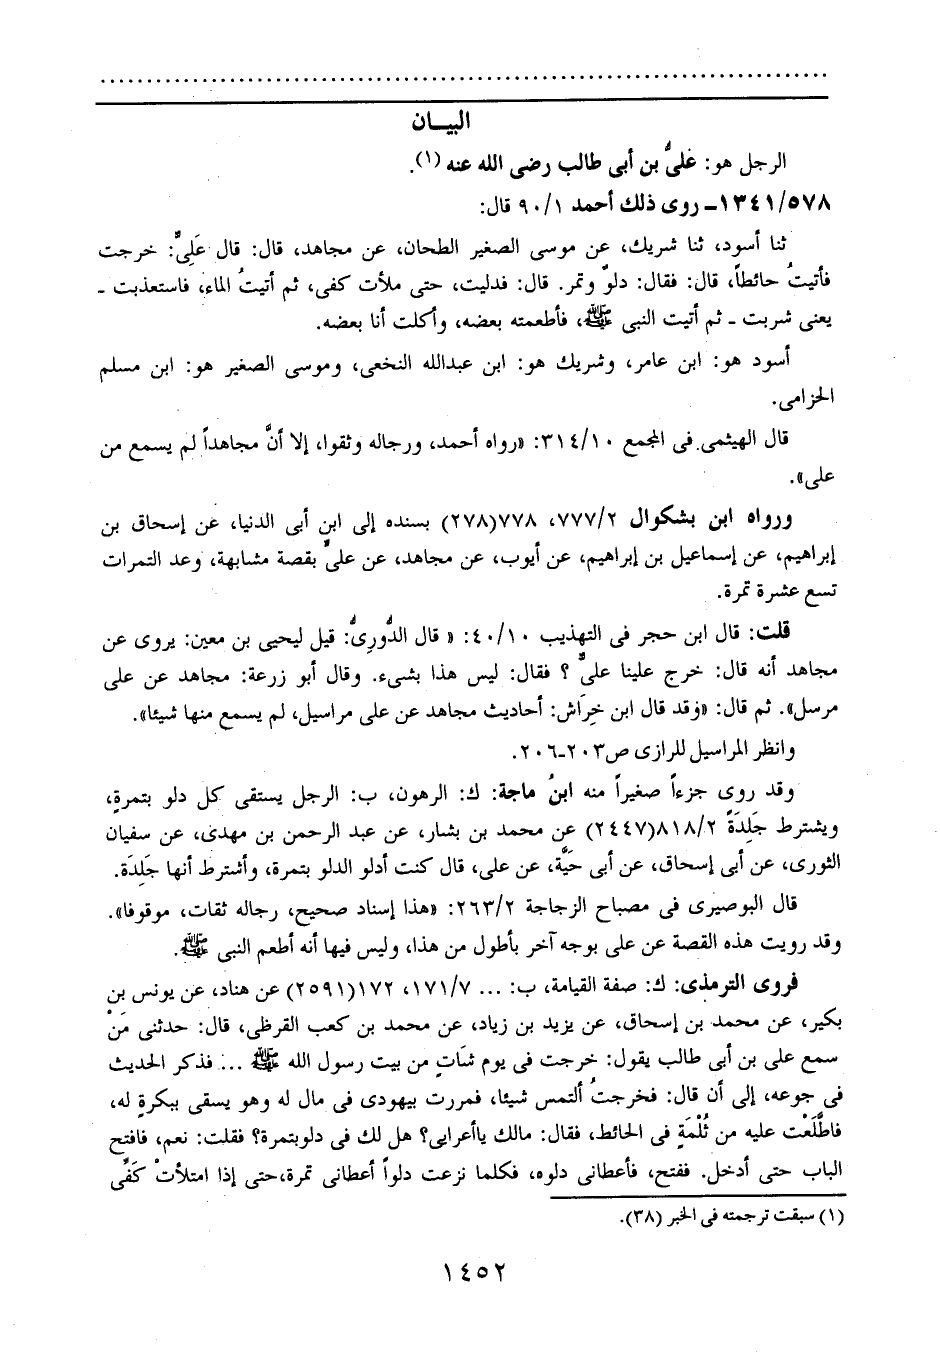 البيـــان
الرجل هو: علىُّ بن أبى طالب رضى الله عنه (١).
١٣٤١/٥٧٨ــ روى ذلك أحمد ٩٠/١ قال:
ثنا أسود، ثنا شريك، عن موسى الصغير الطحان، عن مجاهد، قال: قال عَلِىٌّ: خرجت
فأتيتُ حائطاً، قال: فقال: دلوٌ وتمر. قال: فدليت، حتى ملأت كفى، ثم أتيتُ الماء، فاستعذبت ـ
يعنى شربت ـ ثم أتيت النبى ﷺ، فأطعمته بعضه، وأكلت أنا بعضه.
أسود هو: ابن عامر، وشريك هو: ابن عبدالله النخعى، وموسى الصغير هو: ابن مسلم
الحزامى.
قال الهيثمى فى المجمع ٣١٤/١٠: «رواه أحمد، ورجاله وثقوا، إلا أنَّ مجاهداً لم يسمع من
على».
ورواه ابن بشكوال ٧٧٧/٢، ٧٧٨(٢٧٨) بسنده إلى ابن أبى الدنيا، عن إسحاق بن
إبراهيم، عن إسماعيل بن إبراهيم، عن أيوب، عن مجاهد، عن علىٍّ بقصة مشابهة، وعد التمرات
تسع عشرة تمرة.
قلت: قال ابن حجر فى التهذيب ٤٠/١٠: « قال الدُّورِىُّ: قيل ليحيى بن معين: يروى عن
مجاهد أنه قال: خرج علينا علىٌّ ؟ فقال: ليس هذا بشىء. وقال أبو زرعة: مجاهد عن على
مرسل». ثم قال: «وقد قال ابن خِرَاش: أحاديث مجاهد عن على مراسيل، لم يسمع منها شيئا».
وانظر المراسيل للرازى ص٢٠٣ـ٢٠٦.
وقد روى جزءاً صغيراً منه ابنُ ماجة: ك: الرهون، ب: الرجل يستقى كل دلو بتمرةٍ،
ويشترط جَلِدَةً ٨١٨/٢(٢٤٤٧) عن محمد بن بشار، عن عبد الرحمن بن مهدى، عن سفيان
الثورى، عن أبى إسحاق، عن أبى حَيَّة، عن على، قال كنت أدلو الدلو بتمرة، وأشترط أنها جَلِدَة.
قال البوصيرى فى مصباح الزجاجة ٢٦٣/٢: «هذا إسناد صحيح، رجاله ثقات، موقوفا».
وقد رويت هذه القصة عن على بوجه آخر بأطول من هذا، وليس فيها أنه أطعم النبى ﷺ.
فروى الترمذى: ك: صفة القيامة، ب: ... ١٧١/٧، ١٧٢(٢٥٩١) عن هناد، عن يونس بن
بكير، عن محمد بن إسحاق، عن يزيد بن زياد، عن محمد بن كعب القرظى، قال: حدثنى مَنْ
سمع على بن أبى طالب يقول: خرجت فى يوم شَاتٍ من بيت رسول الله ﷺ ... فذكر الحديث
فى جوعه، إلى أن قال: فخرجتُ ألتمس شيئا، فمررت بيهودى فى مال له وهو يسقى ببكرةٍ له،
فاطَّلَعْت عليه من ثُلْمَةٍ فى الحائط، فقال: مالك ياأعرابى؟ هل لك فى دلوبتمرة؟ فقلت: نعم، فافتح
الباب حتى أدخل. ففتح، فأعطانى دلوه، فكلما نزعت دلواً أعطانى تمرة،حتى إذا امتلأتْ كَفِّى
(١) سبقت ترجمته فى الخبر (٣٨).
١٤٥٢